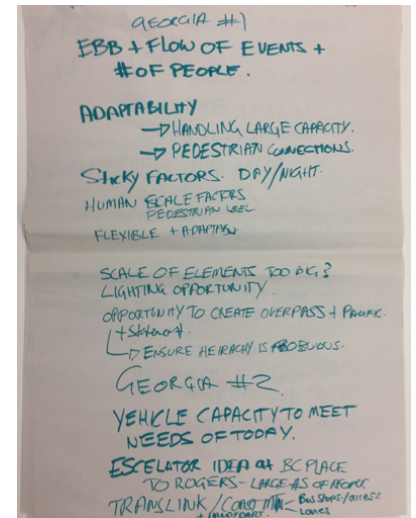 GEORGIA #1
EBB + FLOW OF EVENTS +
# OF PEOPLE.
ADAPTABILITY
→ HANDLING LARGE CAPACITY.
→ PEDESTRIAN CONNECTIONS.
STICKY FACTORS. DAY/NIGHT.
HUMAN SCALE FACTORS
PEDESTRIAN LEVEL
FLEXIBLE +
SCALE OF ELEMENTS TOO BIG?
LIGHTING OPPORTUNITY.
OPPORTUNITY TO CREATE OVERPASS + PACIFIC.
→ ENSURE HEIRACHY IS
GEORGIA #2
VEHICLE CAPACITY TO MEET
NEEDS OF TODAY.
ESCELATOR IDEA at BC PLACE
TO ROGERS - LARGE #S OF PEOPLE
TRANSLINK / Bus Stops/access
Lanes